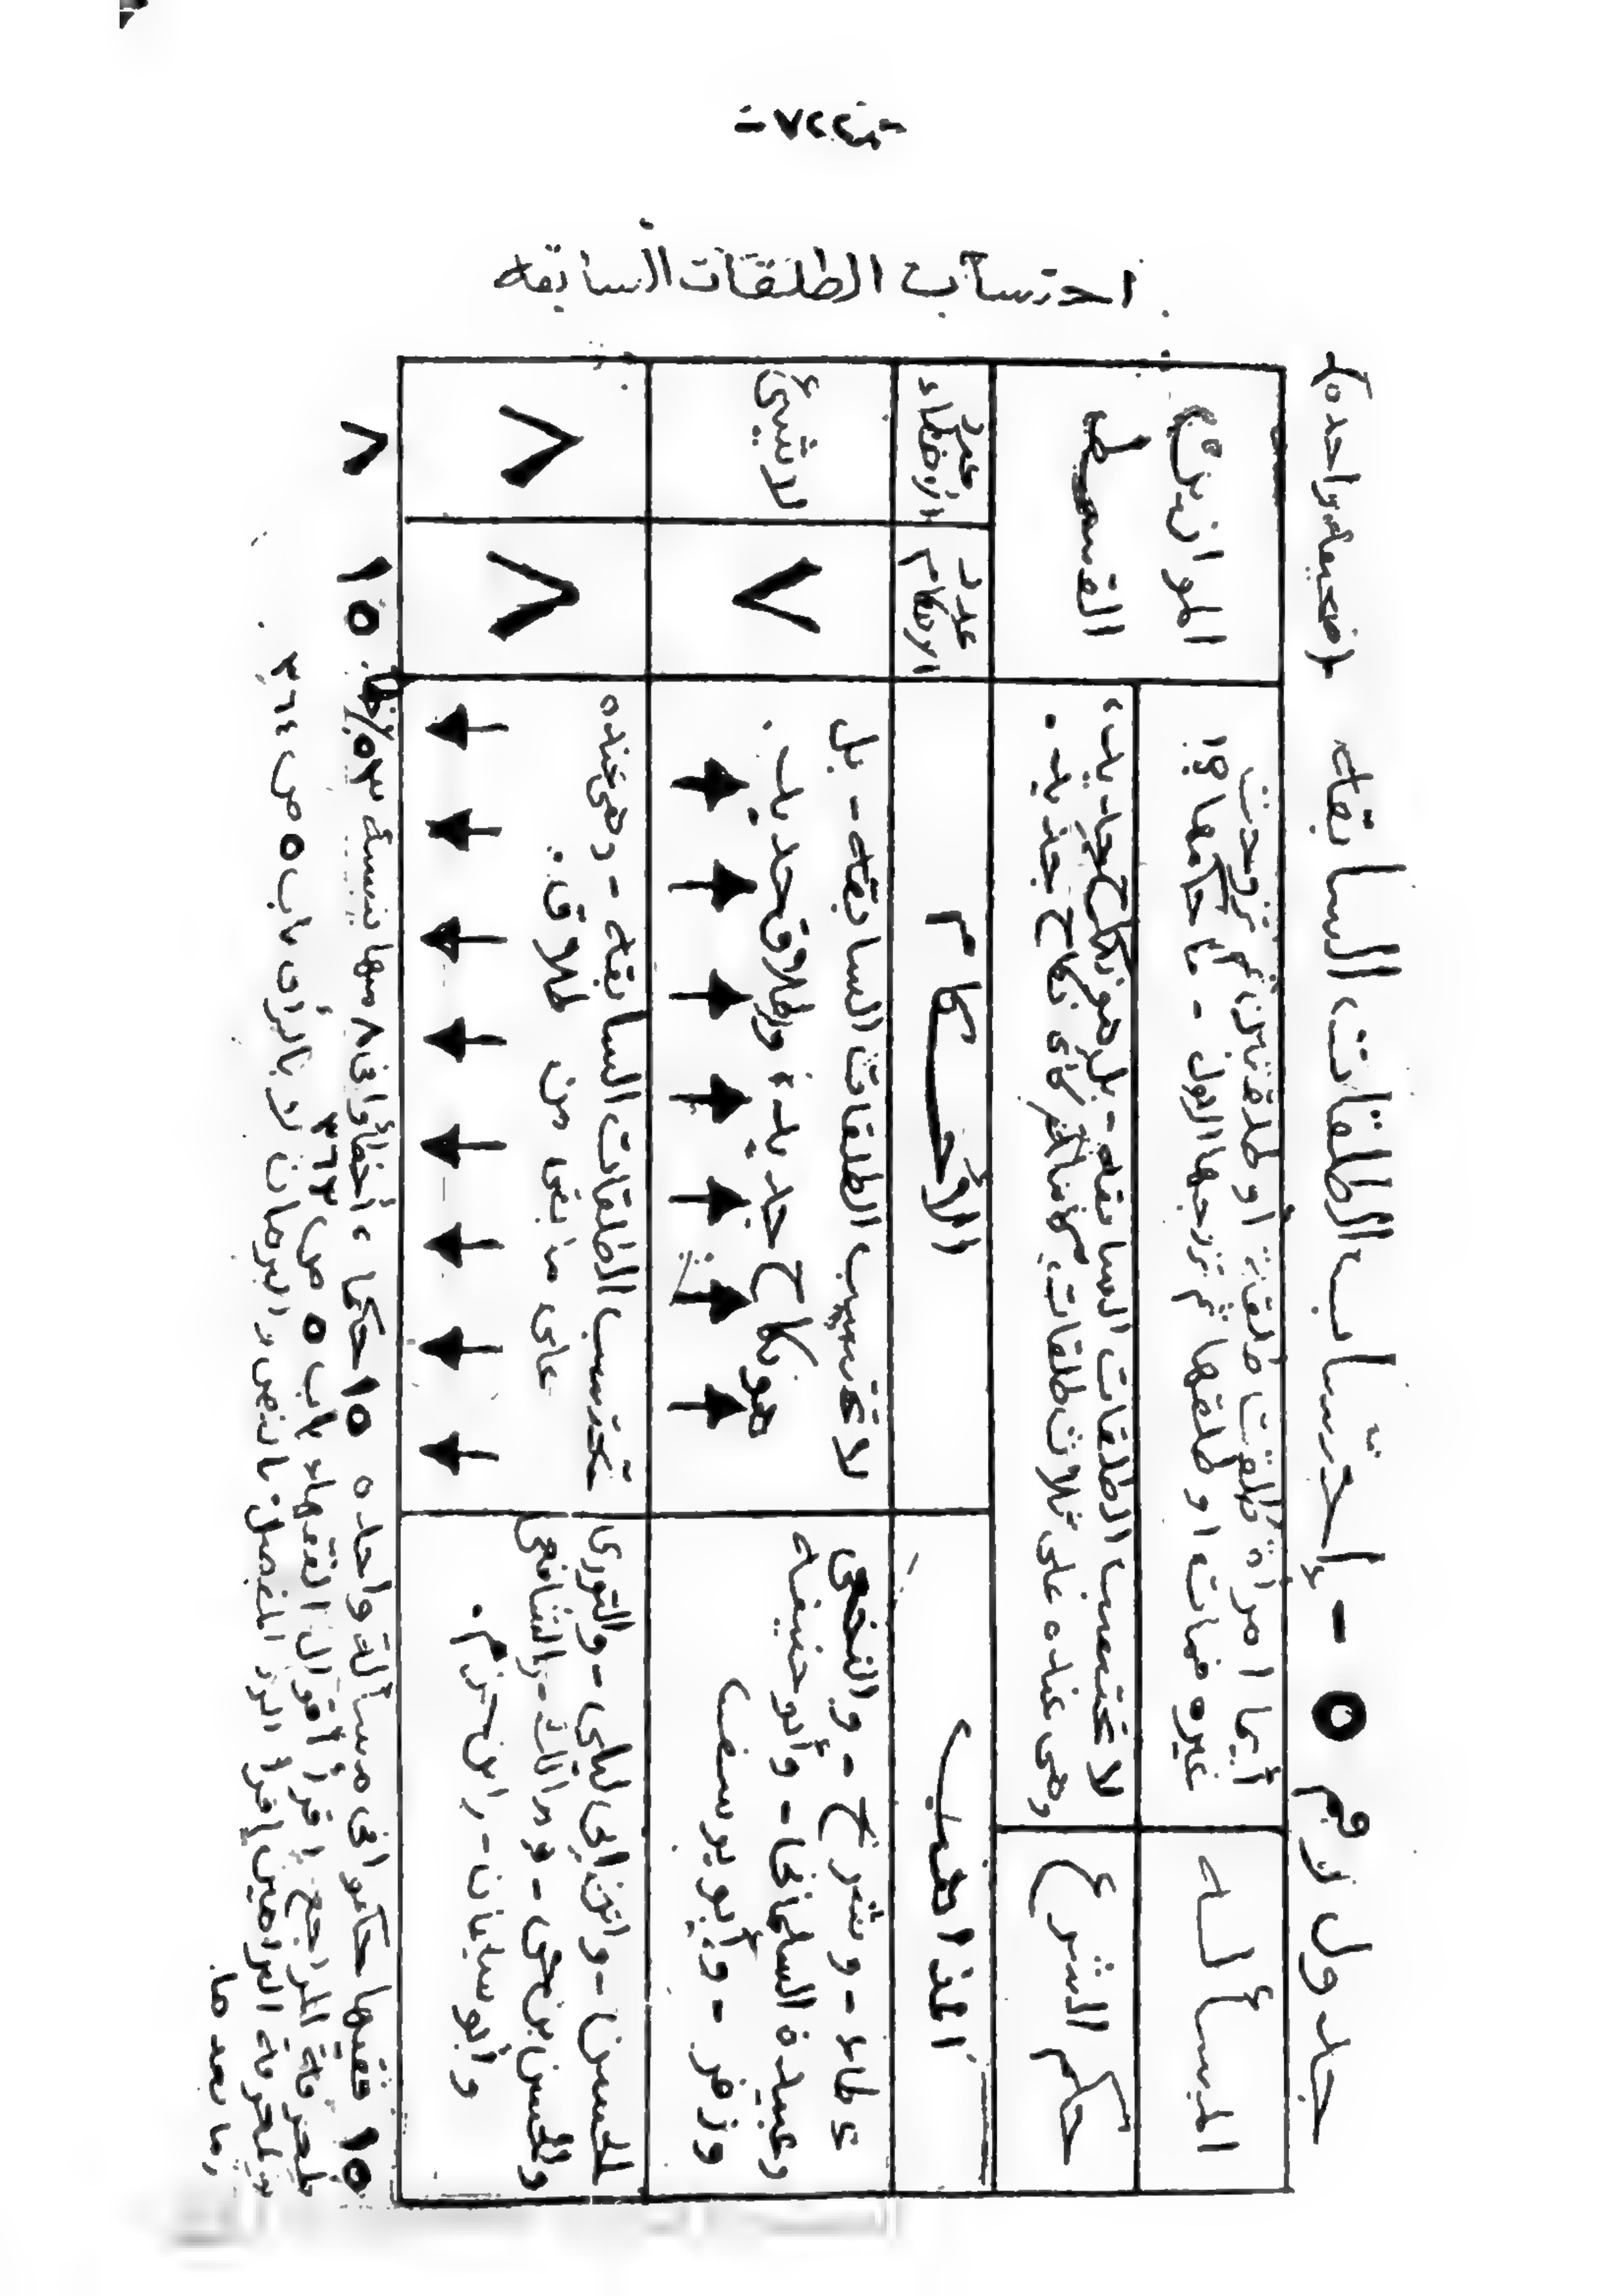 احتساب الطلقات السابقه
جدول رقم ٥ - إحتساب الطلقات السابقه (صحيفه واحده)
المسأله
أيما امرأة طلقت طلقة أو طلقتين ثم تزوجت
غيره فمات او طلقها ثم تزوجها الاول - ما حكمها ؟!
الموازين
القسط
حكم الشرع
لا تحتسب الطلقات السابقه - بل هو نكاح جديد،
وهى عنده على ثلاث طلقات كأى نكاح جديد .
المذاهب
الأحكام
عدد الأحكام
عدد الأخطاء
عطاء - وشريح - والنخعى
وعبيدة السلمانى - وأبو حنيفه
وزفر - وأبو يوسف
لا تحتسب الطلقات السابقه - بل
هو نكاح جديد، وطلاق جديد .
٧
لاشيئ
الحسن - وابن ابى ليلى - والثورى
والحسن بن حى - ومالك - والشافعى
وأبو سليمان - وابن حزم .
تحتسب الطلقات السابقه - وهى عنده
على ما بقى من طلاق .
٨
٨
١٥ فقيها حكموا فى مسألة واحده ١٥ حكما ، أخطأوا فى ٨ منها بنسبة ٥٣٪
١٥
٨
لمعرفة المراجع إقرأ أقوال الفقهاء باب ٥ ص ٣٦٣
ولمعرفة البراهين إقرأ الرد المفصل بالنص والبرهان لا بالرأى باب ٥ ص ٣٦٤
وما بعدها .